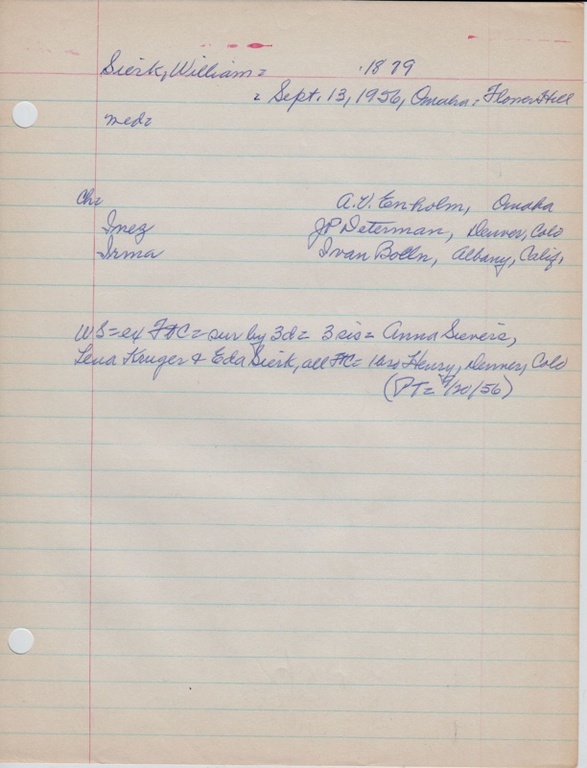 Sierk, William = . 1879
= Sept. 13, 1956, Omaha = Flower Hill
med=
ch= A.V. Enholm, Omaha
Inez JP Determan, Denver, Colo
Irma Ivan Bolln, Albany, Calif.
WS = ex FtC = sur by 3d = 3 sis = Anna Sievers,
Lena Kruger & Eda Sierk, all FtC = 1 bro Henry, Denver, Colo
(PT = 9/20/56)